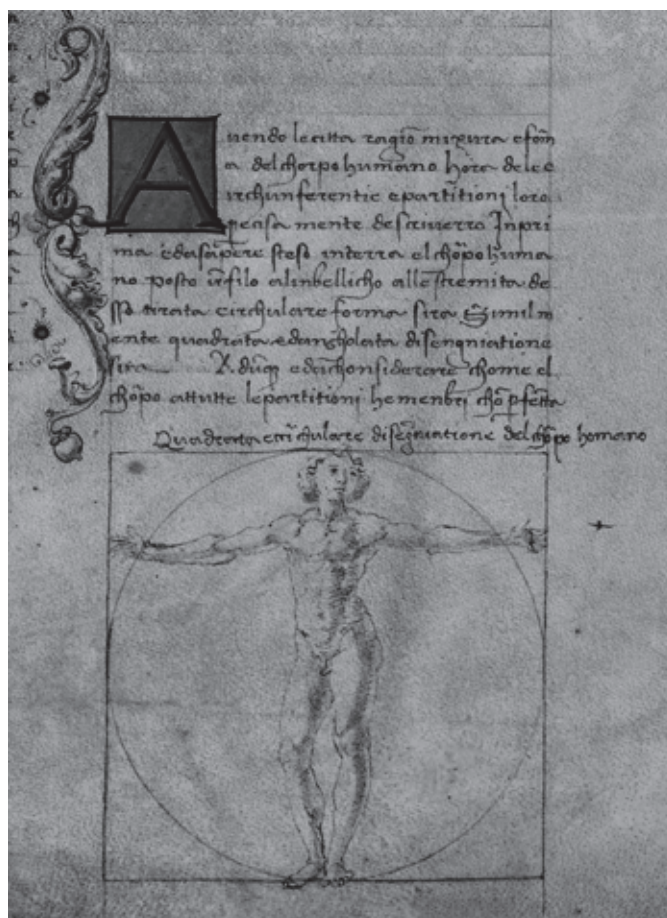 Auendo le citta ragiō mixura e form
a del chorpo humano hora dele c
irchunferentie e partitioni loro
precisa mente descriverro Inpri
ma e da sapere steso interra el chōpo huma
no posto ūfilo alinbellicho alle stremita de
sso tirata circhulare forma sira Similm
ente quadrata edangholata disengniatione
sira edachonsiderare chome el
chōpo attutte lepartitioni he menbri chō pfetta
Quadrata e circhulare disegniatione del chōpo homano